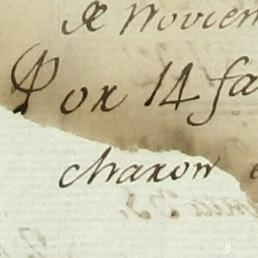 de Noviem
Por 14 fa
charon